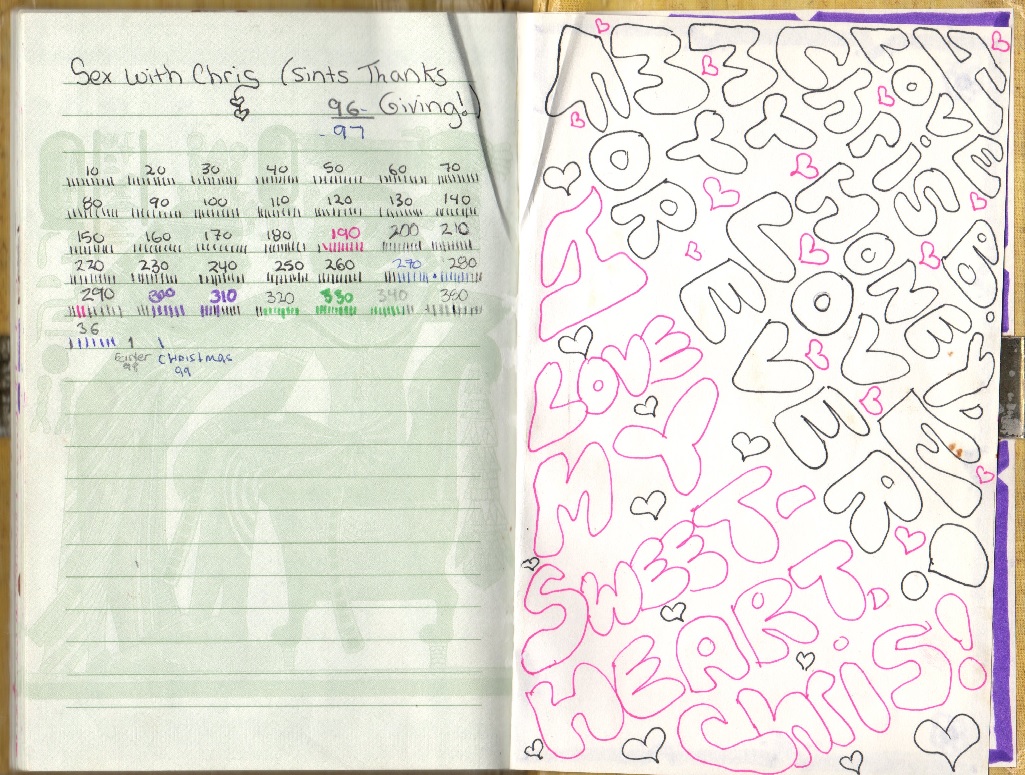 Sex with Chris (sints Thanks
96- Giving!)
-97
10 20 30 40 50 60 70
80 90 100 110 120 130 140
150 160 170 180 190 200 210
220 230 240 250 260 270 280
290 300 310 320 330 340 350
36
Easter Christmas
98 99
I LOVE
Chris B.
MY HONEY
MY LOVE
FOREVER!
I
LOVE
MY
SWEET-
HEART,
Chris!